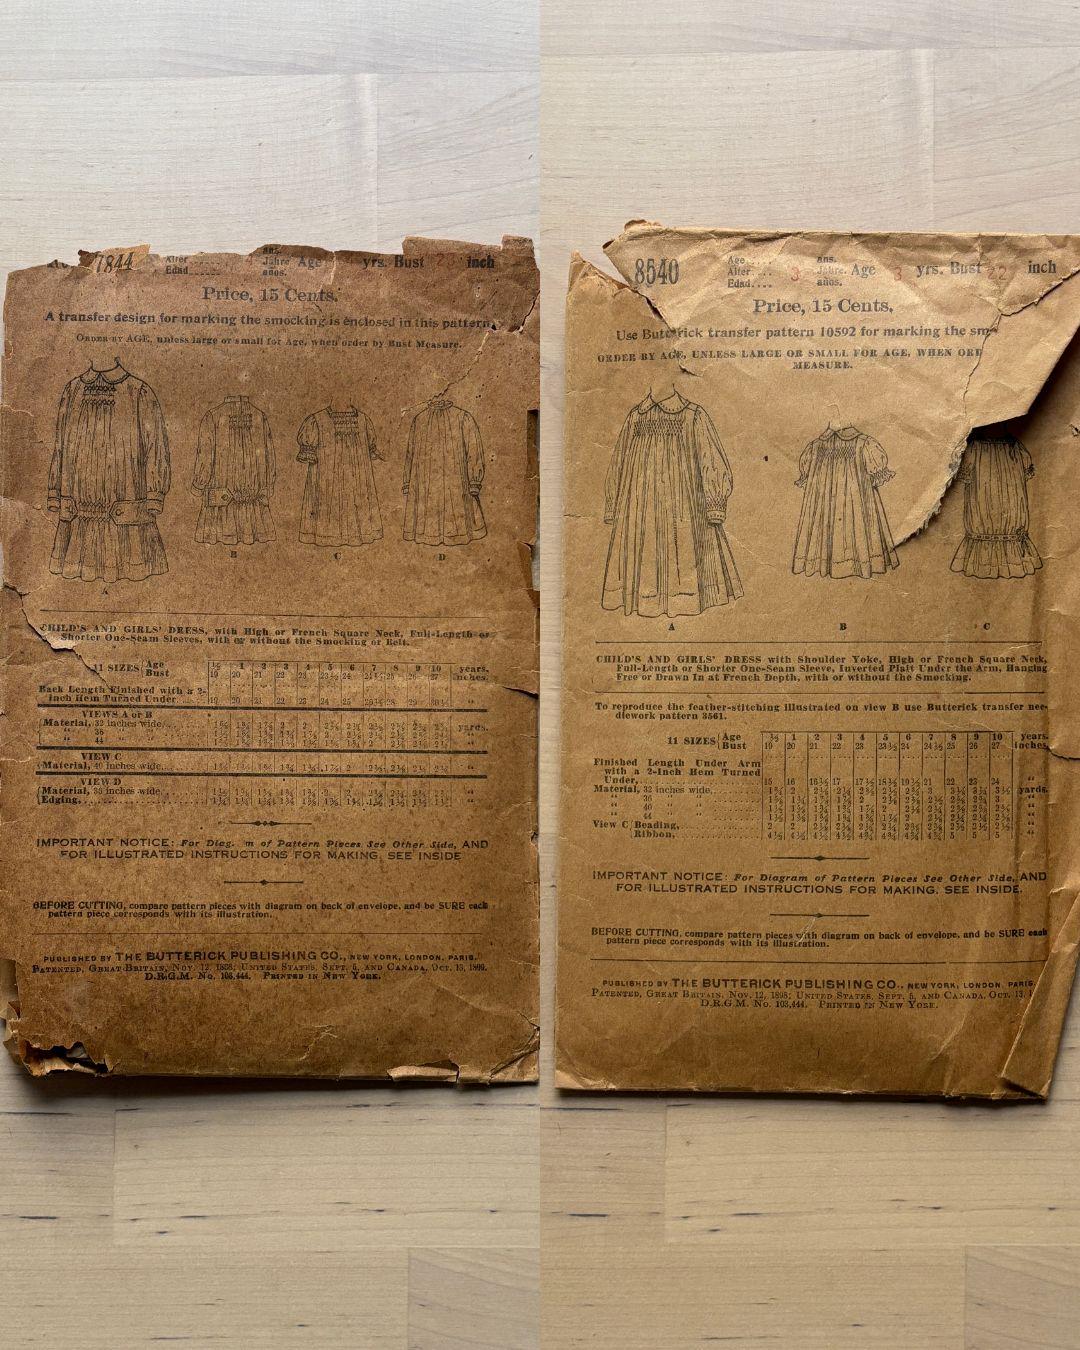 1844
Alter
Edad
ans.
Jahre
años.
4
Age
yrs. Bust 23 inch
Price, 15 Cents.
A transfer design for marking the smocking is enclosed in this pattern.
ORDER BY AGE, unless large or small for Age, when order by Bust Measure.
A
B
C
D
CHILD'S AND GIRLS' DRESS, with High or French Square Neck, Full-Length or
Shorter One-Seam Sleeves, with or without the Smocking or Belt.
11 SIZES
Age ½ 1 2 3 4 5 6 7 8 9 10 years.
Bust 19 20 21 22 23 23½ 24 24½ 25 26 27 inches.
Back Length Finished with a 2-
inch Hem Turned Under
VIEWS A or B
Material, 32 inches wide yards.
" 36 "
" 44 "
VIEW C
Material, 40 inches wide
VIEW D
Material, 36 inches wide
Edging,
IMPORTANT NOTICE: For Diag. m of Pattern Pieces See Other Side, AND
FOR ILLUSTRATED INSTRUCTIONS FOR MAKING, SEE INSIDE
BEFORE CUTTING, compare pattern pieces with diagram on back of envelope, and be SURE each
pattern piece corresponds with its illustration.
PUBLISHED BY THE BUTTERICK PUBLISHING CO., NEW YORK, LONDON, PARIS.
PATENTED, GREAT BRITAIN, NOV. 12, 1898; UNITED STATES, SEPT. 5, AND CANADA, OCT. 13, 1899.
D.R.G.M. No. 103,444. PRINTED IN NEW YORK.
8540
Age
Alter
Edad
3
ans.
Jahre.
años.
Age 3 yrs. Bust 22 inch
Price, 15 Cents.
Use Butterick transfer pattern 10592 for marking the sm
ORDER BY AGE, UNLESS LARGE OR SMALL FOR AGE, WHEN ORD
MEASURE.
A
B
C
CHILD'S AND GIRLS' DRESS with Shoulder Yoke, High or French Square Neck,
Full-Length or Shorter One-Seam Sleeve, Inverted Plait Under the Arm, Hanging
Free or Drawn In at French Depth, with or without the Smocking.
To reproduce the feather-stitching illustrated on view B use Butterick transfer nee-
dlework pattern 3561.
11 SIZES
Age ½ 1 2 3 4 5 6 7 8 9 10 years.
Bust 19 20 21 22 23 23½ 24 24½ 25 26 27 inches.
Finished Length Under Arm
with a 2-Inch Hem Turned
Under, 15 16 16½ 17 17½ 18½ 19½ 21 22 23 24 "
Material, 32 inches wide yards.
" 36 " "
" 40 " "
" 44 " "
View C Beading,
Ribbon,
IMPORTANT NOTICE: For Diagram of Pattern Pieces See Other Side, AND
FOR ILLUSTRATED INSTRUCTIONS FOR MAKING, SEE INSIDE.
BEFORE CUTTING, compare pattern pieces with diagram on back of envelope, and be SURE each
pattern piece corresponds with its illustration.
PUBLISHED BY THE BUTTERICK PUBLISHING CO., NEW YORK, LONDON, PARIS
PATENTED, GREAT BRITAIN, NOV. 12, 1898; UNITED STATES, SEPT. 5, AND CANADA, OCT. 13, 1
D.R.G.M. No. 103,444. PRINTED IN NEW YORK.